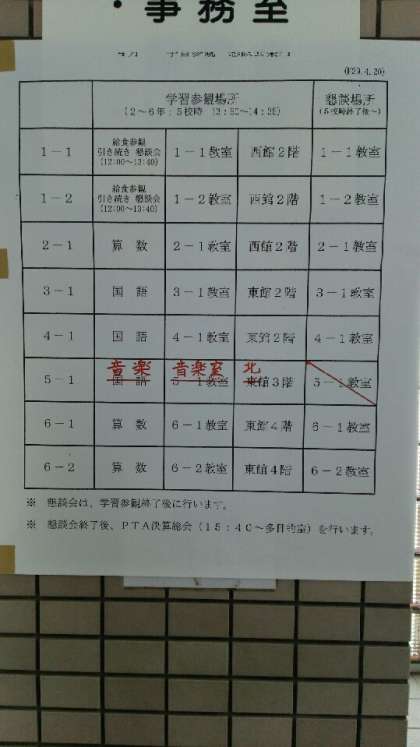 ・事務室
(H29.4.20)
学習参観場所
(2～6年：5校時 13:50～14:35)
懇談場所
(5校時終了後～)
1－1 給食参観 引き続き 懇談会 (12:00～13:40) 1－1教室 西館2階 1－1教室
1－2 給食参観 引き続き 懇談会 (12:00～13:40) 1－2教室 西館2階 1－2教室
2－1 算数 2－1教室 西館2階 2－1教室
3－1 国語 3－1教室 東館2階 3－1教室
4－1 国語 4－1教室 東館2階 4－1教室
音楽 音楽室 北
5－1 国語 5－1教室 東館3階 5－1教室
6－1 算数 6－1教室 東館4階 6－1教室
6－2 算数 6－2教室 東館4階 6－2教室
※ 懇談会は、学習参観終了後に行います。
※ 懇談会終了後、PTA決算総会（15：40～多目的室）を行います。